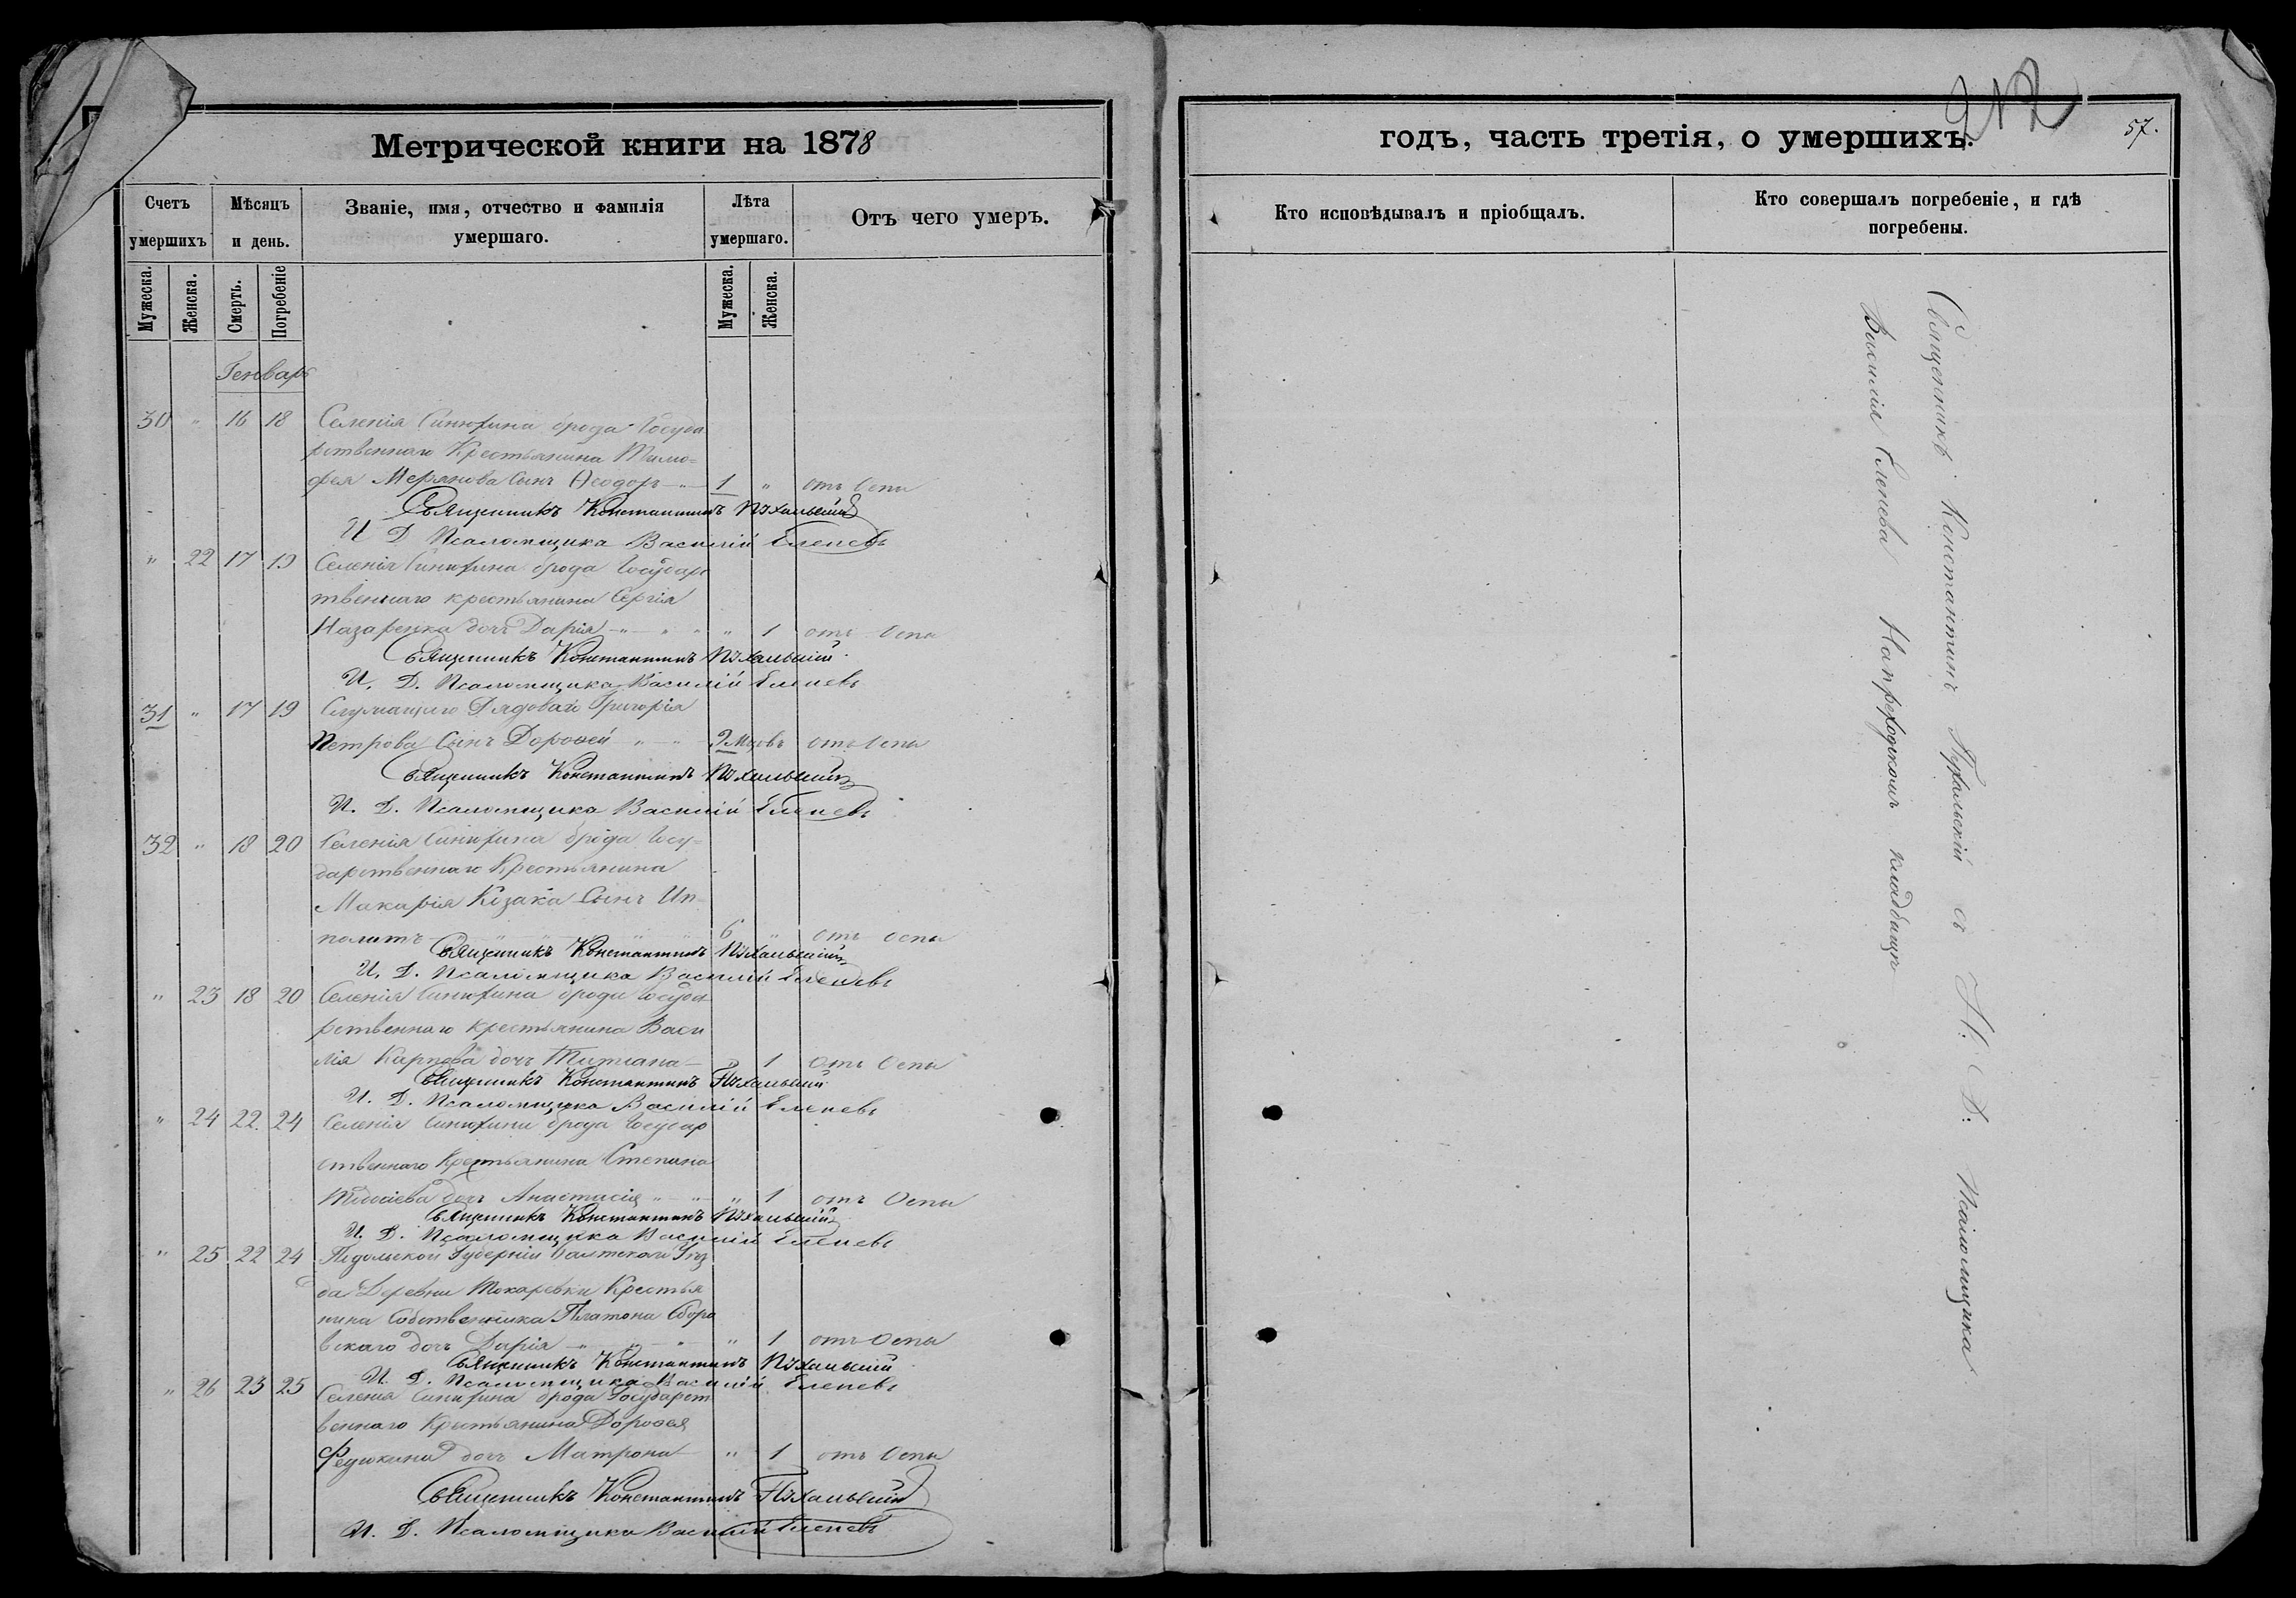 Метрической книги на 1878
Счетъ умершихъ
Мѣсяцъ и день.
Званіе, имя, отчество и фамилія умершаго.
Лѣта умершаго.
Отъ чего умеръ.
Мужеска.
Женска.
Смерть.
Погребеніе
Мужеска.
Женска.
Генварь
30 " 16 18 Селенія Синюхина брода Госуда
рственнаго Крестьянина Тимо=
фея Сынъ Ѳеодоръ 1 " отъ Оспы
Священникъ Константинъ
И Д Псаломщика Василій Еленевъ
" 22 17 19 Селенія Синюхина брода Государс
твеннаго крестьянина Сергія
Назаренка дочь Дарія " 1 отъ Оспы
Священникъ Константинъ
И. Д. Псаломщика Василій Еленевъ
31 " 17 19 Служащаго Рядовой Григорія
Петрова Сынъ Дороѳей 9 Мцовъ отъ Оспы
Священникъ Константинъ
И. Д. Псаломщика Василій Еленевъ
32 " 18 20 Селенія Синюхина брода Госу=
дарственнаго Крестьянина
Макарія Козака Сынъ Ип
политъ 6 " отъ оспы
Священникъ Константинъ
И. Д. Псаломщика Василій Еленевъ
" 23 18 20 Селенія Синюхина брода Госуда
рственнаго крестьянина Васи
лія Карпова дочь Татіана " 1 отъ Оспы
Священникъ Константинъ
И. Д. Псаломщика Василій Еленевъ
" 24 22 24 Селенія Синюхина брода Государ
ственнаго Крестьянина Степана
дочь Анастасія " 1 отъ Оспы
Священникъ Константинъ
И. Д. Псаломщика Василій Еленевъ
" 25 22 24 Подольской Губерніи Балтскаго Уѣз
да Деревни Токаревки Крестья
нина Собственника Платона Сборо
вскаго дочь Дарія " 1 отъ Оспы
Священникъ Константинъ
И. Д. Псаломщика Василій Еленевъ
" 26 23 25 Селенія Синюхина брода Государст
веннаго Крестьянина Дороѳея
Федюкина дочь Матрона " 1 отъ Оспы
Священникъ Константинъ
И. Д. Псаломщика Василій Еленевъ
годъ, часть третія, о умершихъ.
57.
Кто исповѣдывалъ и пріобщалъ.
Кто совершалъ погребеніе, и гдѣ погребены.
Священникъ Константинъ съ И. Д. Псаломщика
Василія Еленева На приходскомъ кладбищѣ